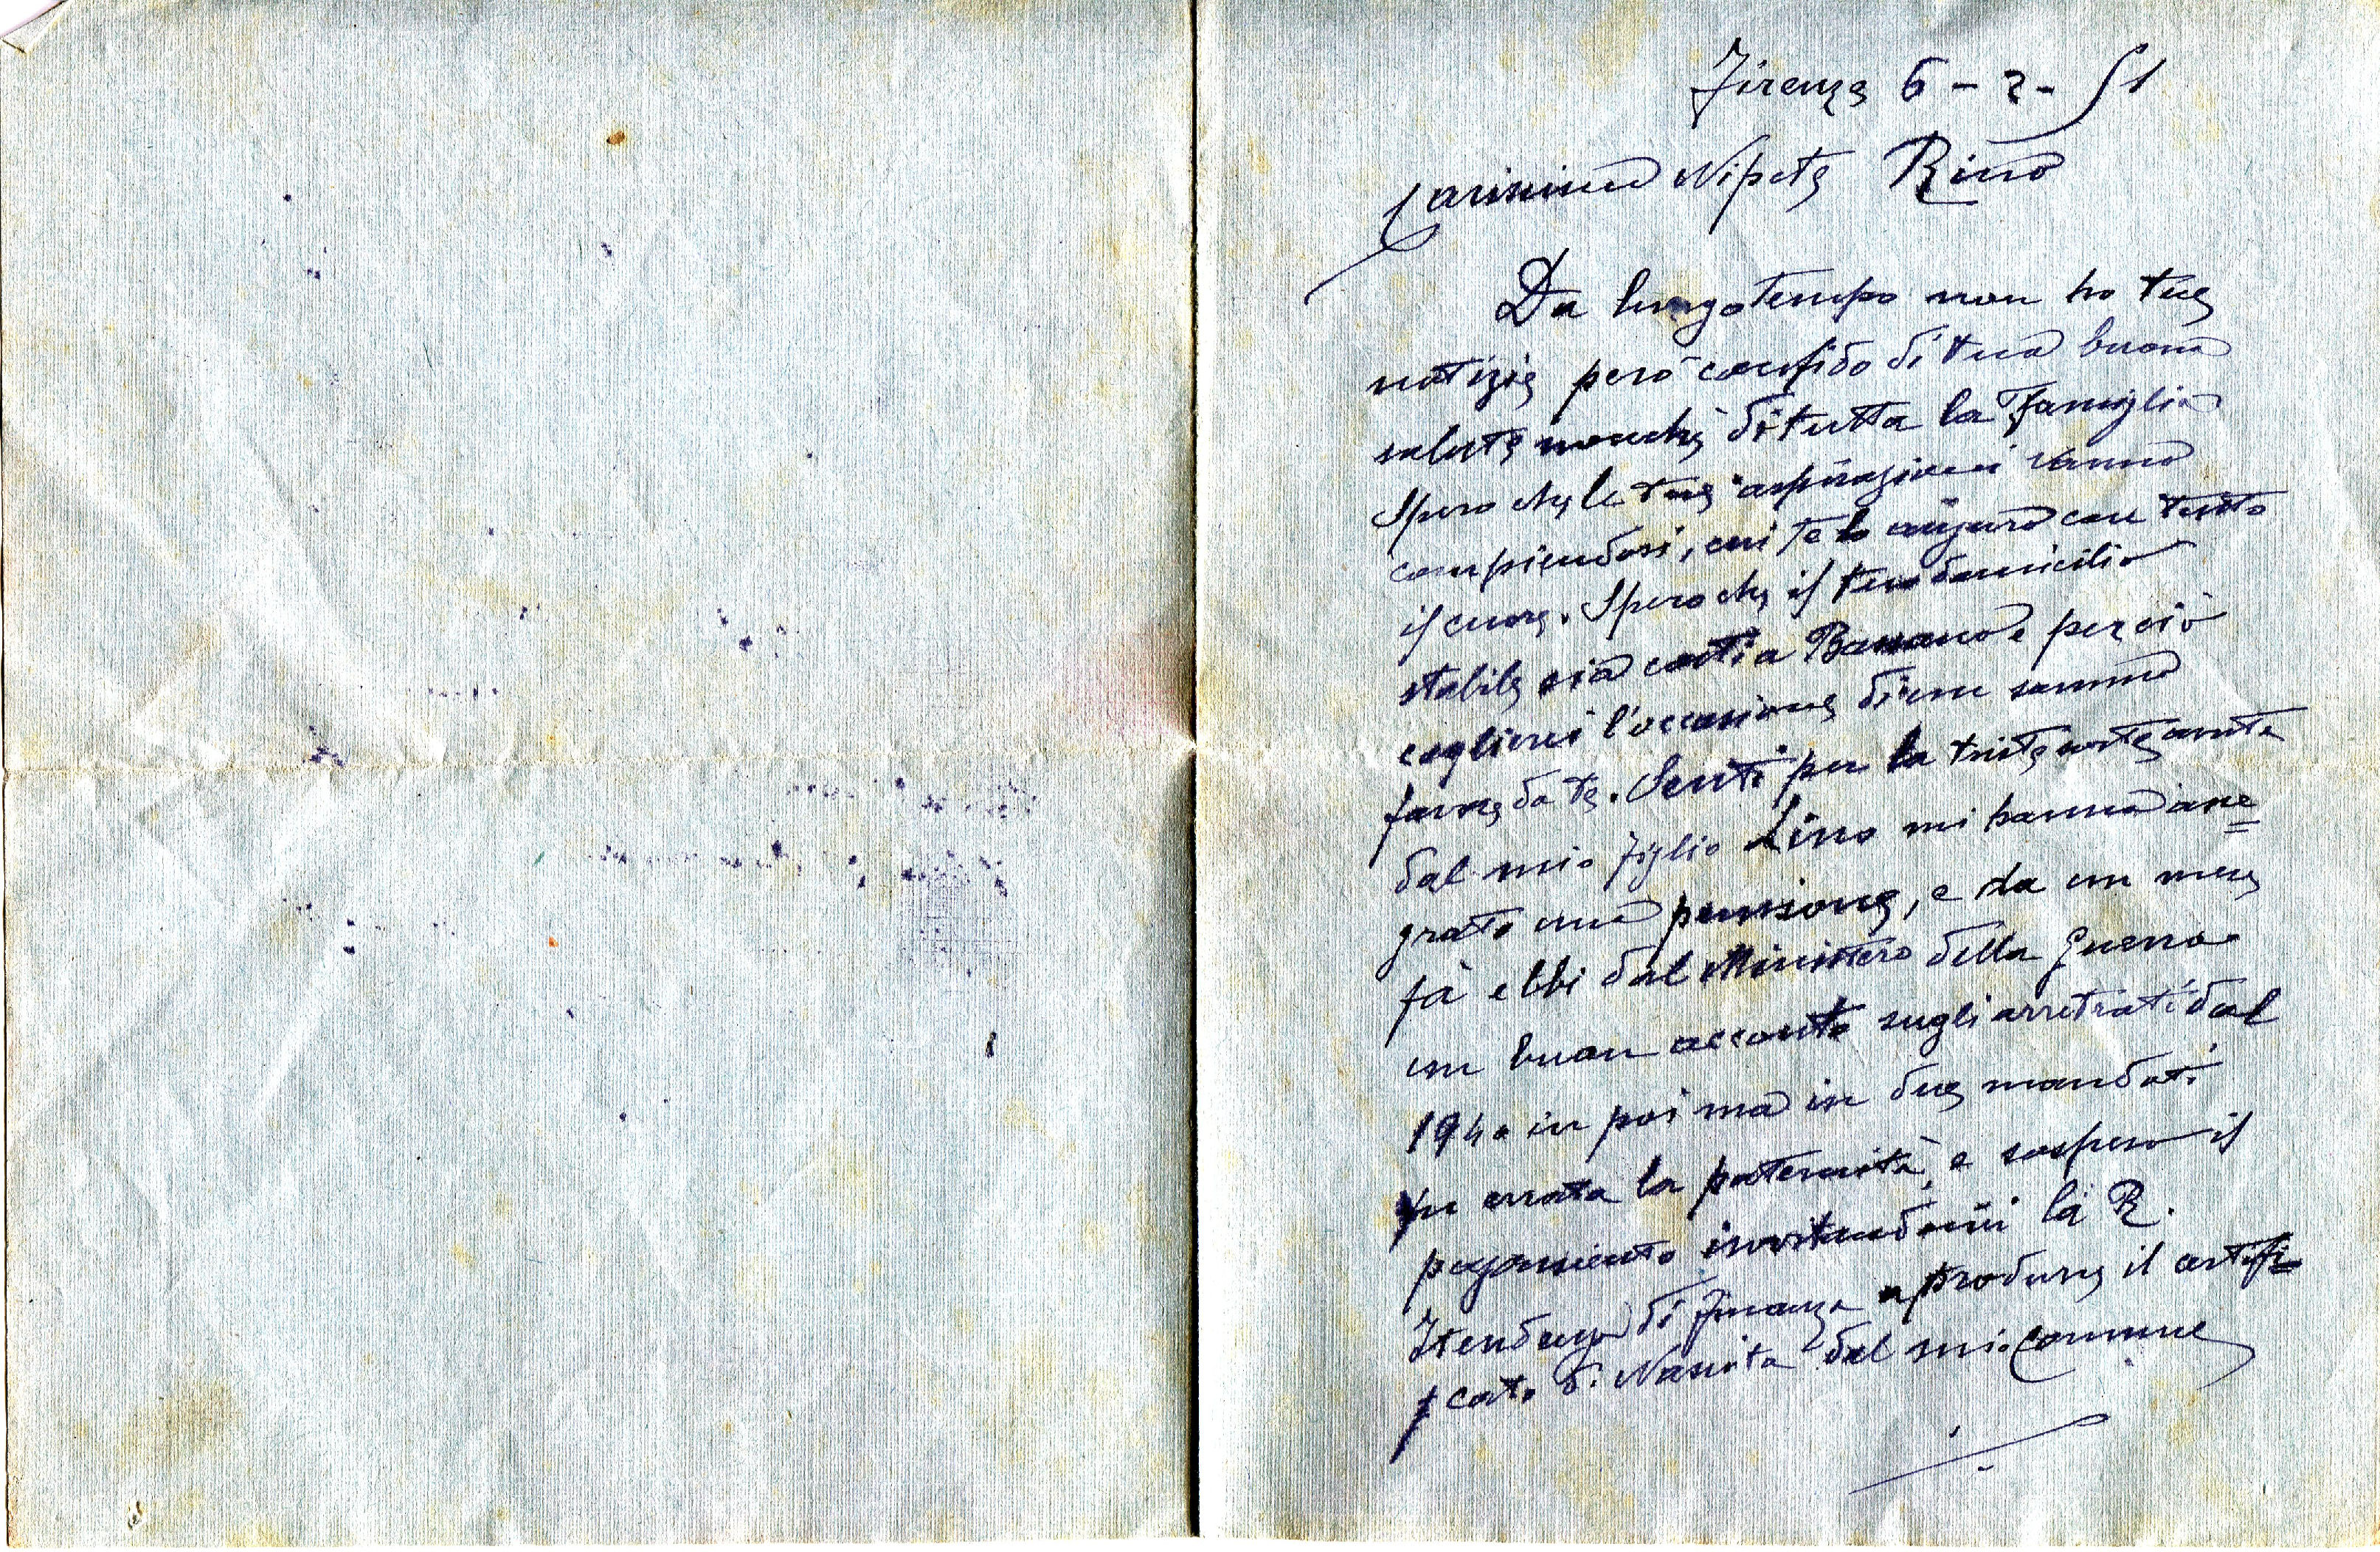 Firenze 6 - 2 - 51
Carissimo Nipote Rino
Da lungo tempo non ho tue
notizie però confido di tua buona
salute nonche di tutta la Famiglia
Spero che le tue aspirazioni vanno
compiendosi, cui te lo auguro con tutto
il cuore. Spero che il tuo domicilio
stabile sia costi a e perciò
coglierei l'occasione di un sommo
favore da te. Senti per la triste sorte avuta
dal mio figlio Lino mi hanno asse=
grato una pensione, e da un mese
fà ebbi dal Ministero della Guerra
un buon acconto sugli arretrati dal
1940 in poi ma in due mandati
fu errata la paternità, e sospeso il
pagamento invitandomi la R.
Itendenza di finanza a produrre il certifi=
cato di Nascita dal mio Comune